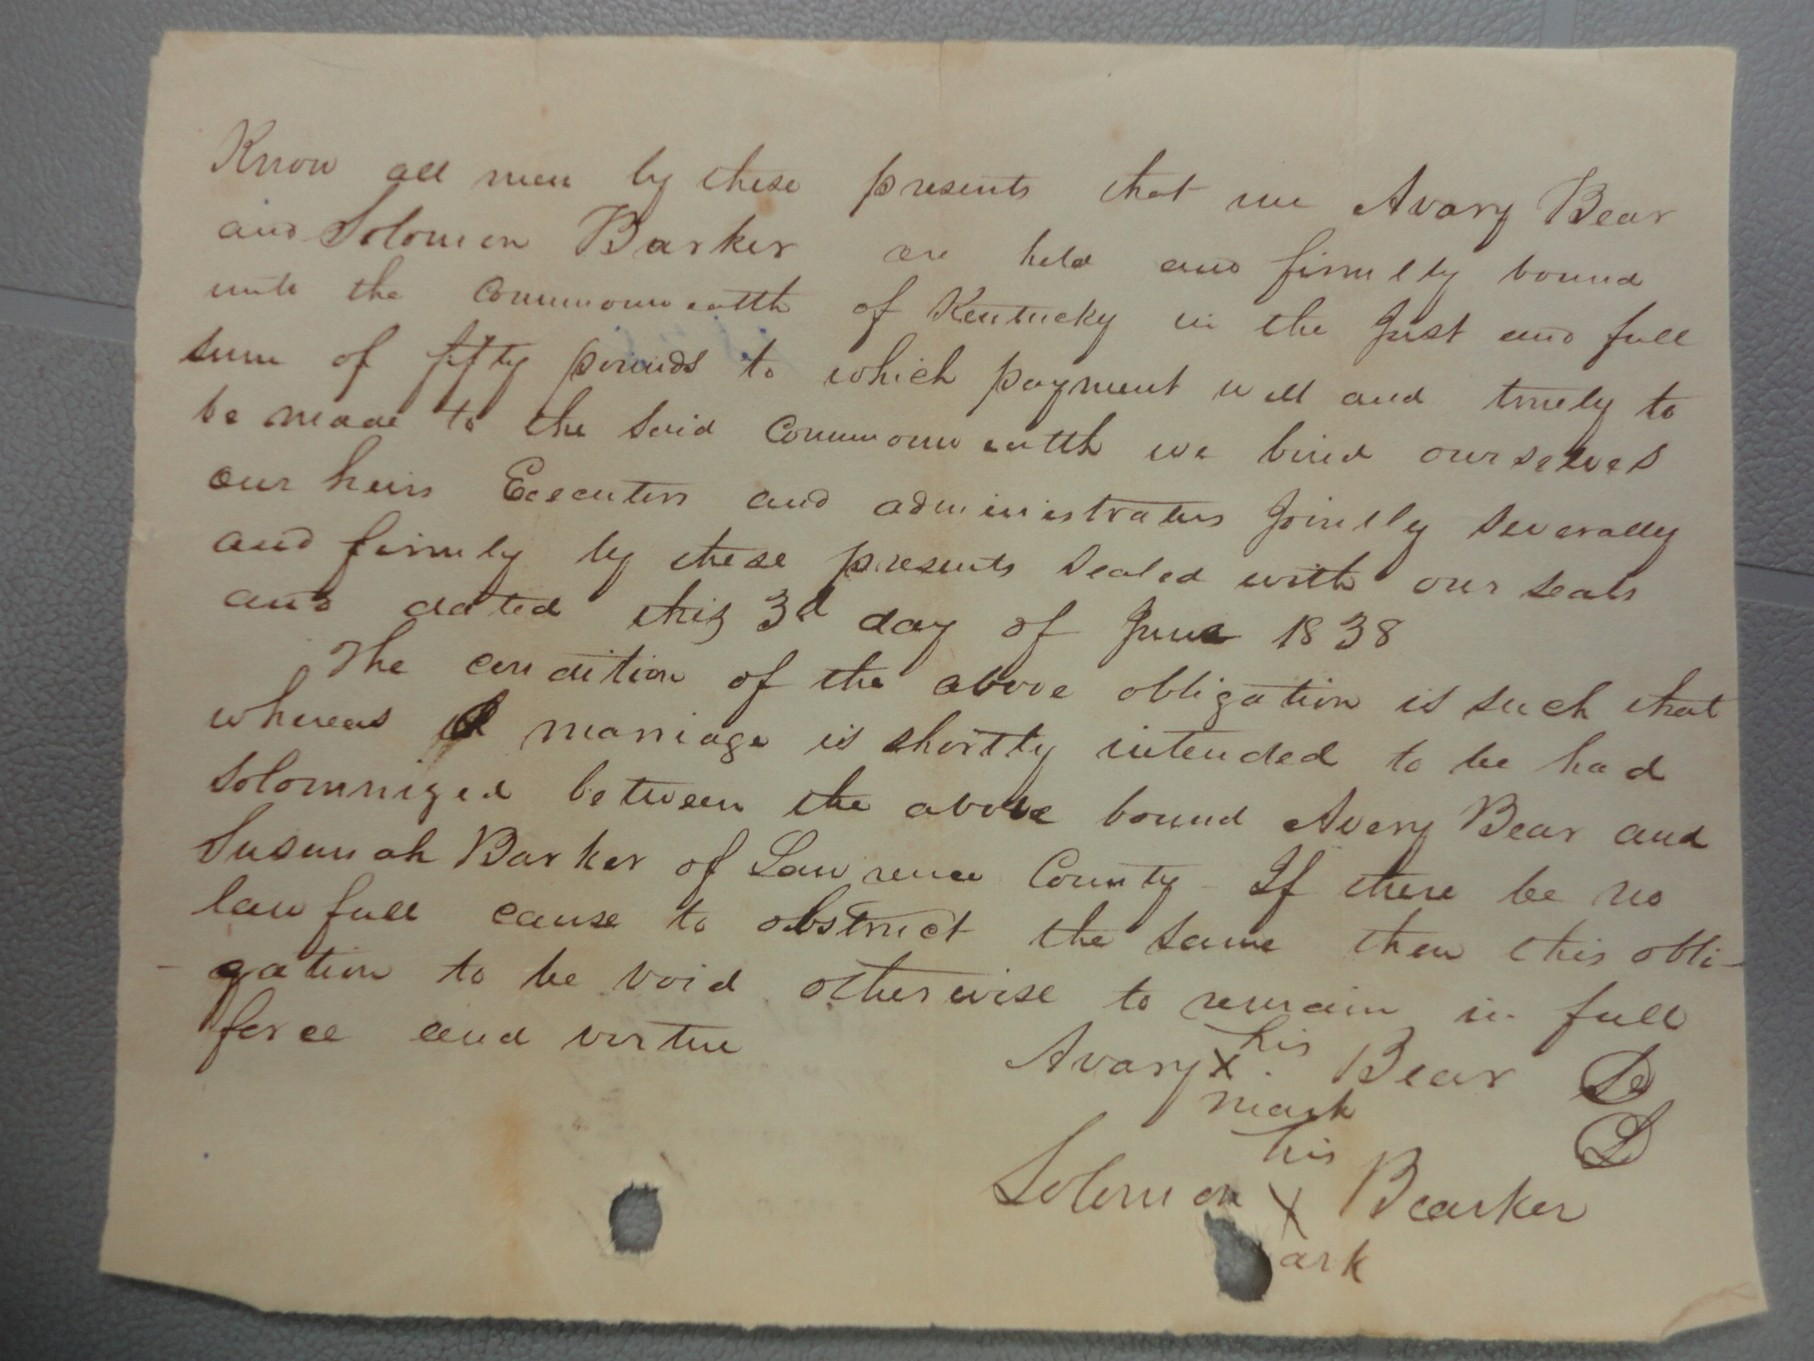 Know all men by these presents that we Avary Bear
and Solomon Barker are held and firmlly bound
unto the Commonwealth of Kentucky in the Just and full
sum of fifty pounds to which payment well and truely to
be made to the said Commonwealth we bind ourselves
our heirs Executors and administrators Jointlly severally
and firmly by these presents sealed with our seals
and dated this 3d day of June 1838
The condition of the above obligation is such that
whereas a marriage is shortly intended to be had
solomnized between the above bound Avery Bear and
Susunah Barker of Lawrence County If there be no
lawfull cause to obstruct the same then this obli-
-gation to be void otherwise to remain in full
force and virtue
his
Avary X Bear
mark
his
Solomon X Bearker
ark